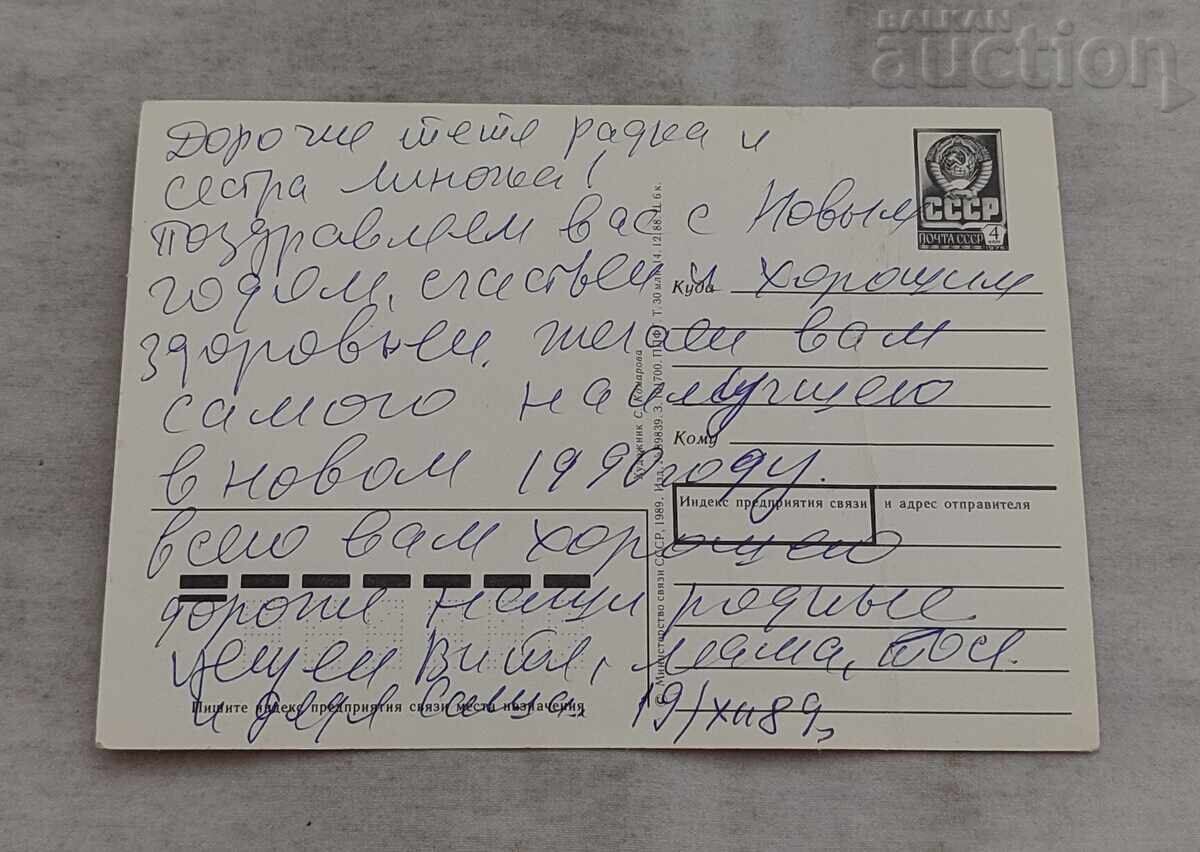 BALKAN
auction
Дорогие тетя Радка и
сестра Миночка!
поздравляем вас с Новым
годом, счастьем и хорошим
здоровьем. желаем вам
самого наилучшего
в новом 1990 году.
всего вам хорошего
дорогие наши родные
целуем Витя, мама, Тося.
и дядя Саша. 19/XII 89,
СССР
ПОЧТА СССР 4 коп
1976
Куда
Кому
Индекс предприятия связи и адрес отправителя
Пишите индекс предприятия связи места назначения
Художник С. Комарова
© Министерство связи СССР, 1989. Изд. 1700. ППФГ. Т. 30 млн. 14.12.88. Ц. 6 к.